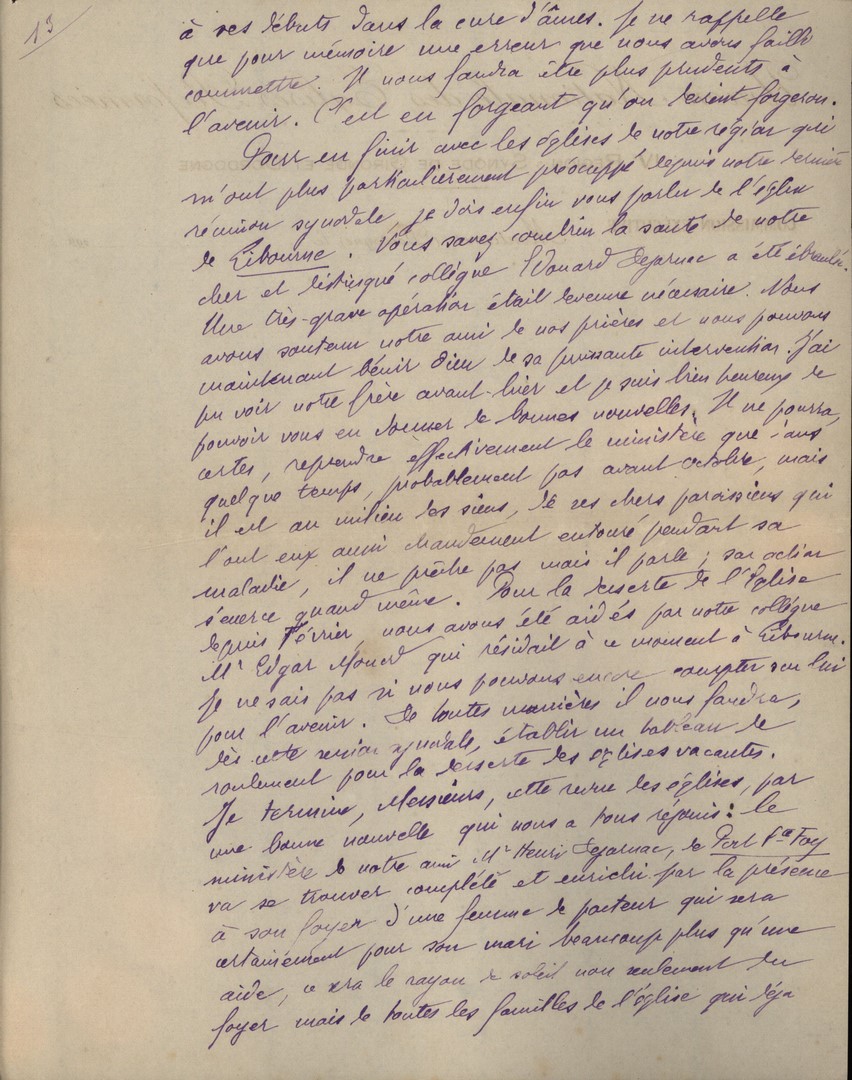 13
à ses débuts dans la cure d'âmes. Je ne rappelle
que pour mémoire une erreur que nous avons failli
commettre. Il nous faudra être plus prudents à
l'avenir. C'est en forgeant qu'on devient forgeron.
Pour en finir avec les églises de notre région qui
m'ont plus particulièrement préoccupé depuis notre dernière
réunion synodale, je dois enfin vous parler de l'église
de Libourne. Vous savez combien la santé de notre
cher et distingué collègue Edouard Dejarnac a été ébranlée.
Une très-grave opération était devenue nécessaire. Nous
avons soutenu notre ami de nos prières et nous pouvons
maintenant bénir Dieu de sa puissante intervention. J'ai
pu voir notre frère avant-hier et je suis bien heureux de
pouvoir vous en donner de bonnes nouvelles. Il ne pourra,
certes, reprendre effectivement le ministère que dans
quelque temps, probablement pas avant octobre, mais
il est au milieu des siens, de ses chers paroissiens qui
l'ont eux aussi chaudement entouré pendant sa
maladie, il ne prêche pas mais il parle ; son action
s'exerce quand même. Pour la desserte de l'Eglise
depuis Février nous avons été aidés par notre collègue
Mr Edgar qui résidait à ce moment à Libourne.
Je ne sais pas si nous pouvons encore compter sur lui
pour l'avenir. De toutes manières il nous faudra,
dès cette session synodale, établir un tableau de
roulement pour la desserte des églises vacantes.
Je termine, Messieurs, cette revue des églises, par
une bonne nouvelle qui nous a tous réjouis : le
ministère de notre ami Mr Henri Dejarnac, de Port Ste Foy
va se trouver complété et enrichi par la présence
à son foyer d'une femme de pasteur qui sera
certainement pour son mari beaucoup plus qu'une
aide, ce sera le rayon de soleil non seulement du
foyer mais de toutes les familles de l'église qui déjà